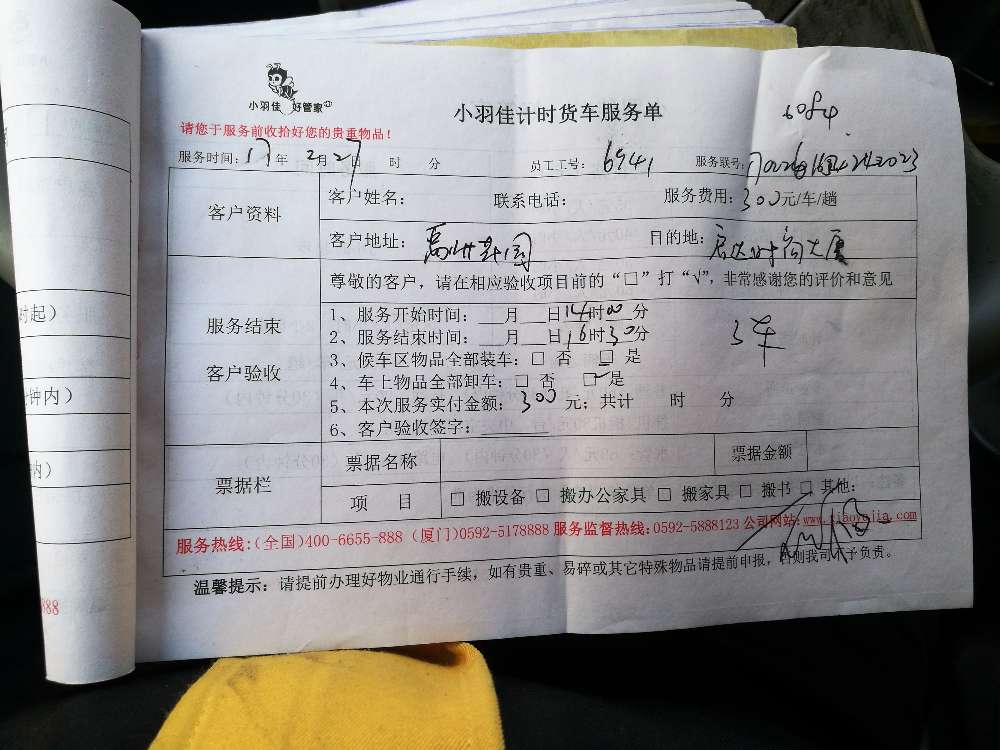 小羽佳 好管家
小羽佳计时货车服务单
6084
请您于服务前收拾好您的贵重物品!
服务时间: 17 年 2月27日 时 分 员工工号: 6941 服务联号:
客户资料
客户姓名: 联系电话: 服务费用: 300元/车/趟
客户地址: 目的地: 宏达时尚大厦
尊敬的客户，请在相应验收项目前的“□”打“√”，非常感谢您的评价和意见
服务结束
客户验收
1、服务开始时间: 月 日14时00分
2、服务结束时间: 月 日16时30分
3车
3、候车区物品全部装车: □ 否 □ 是
4、车上物品全部卸车: □ 否 ☑ 是
5、本次服务实付金额: 300 元; 共计 时 分
6、客户验收签字:
票据栏
票据名称 票据金额
项 目 □ 搬设备 □ 搬办公家具 □ 搬家具 □ 搬书 □ 其他:
服务热线:(全国)400-6655-888 (厦门)0592-5178888 服务监督热线:0592-5888123 公司网站:www.xiaoyujia.com
温馨提示: 请提前办理好物业通行手续，如有贵重、易碎或其它特殊物品请提前申报，否则我司不予负责。
对起)
钟内)
钠)
888